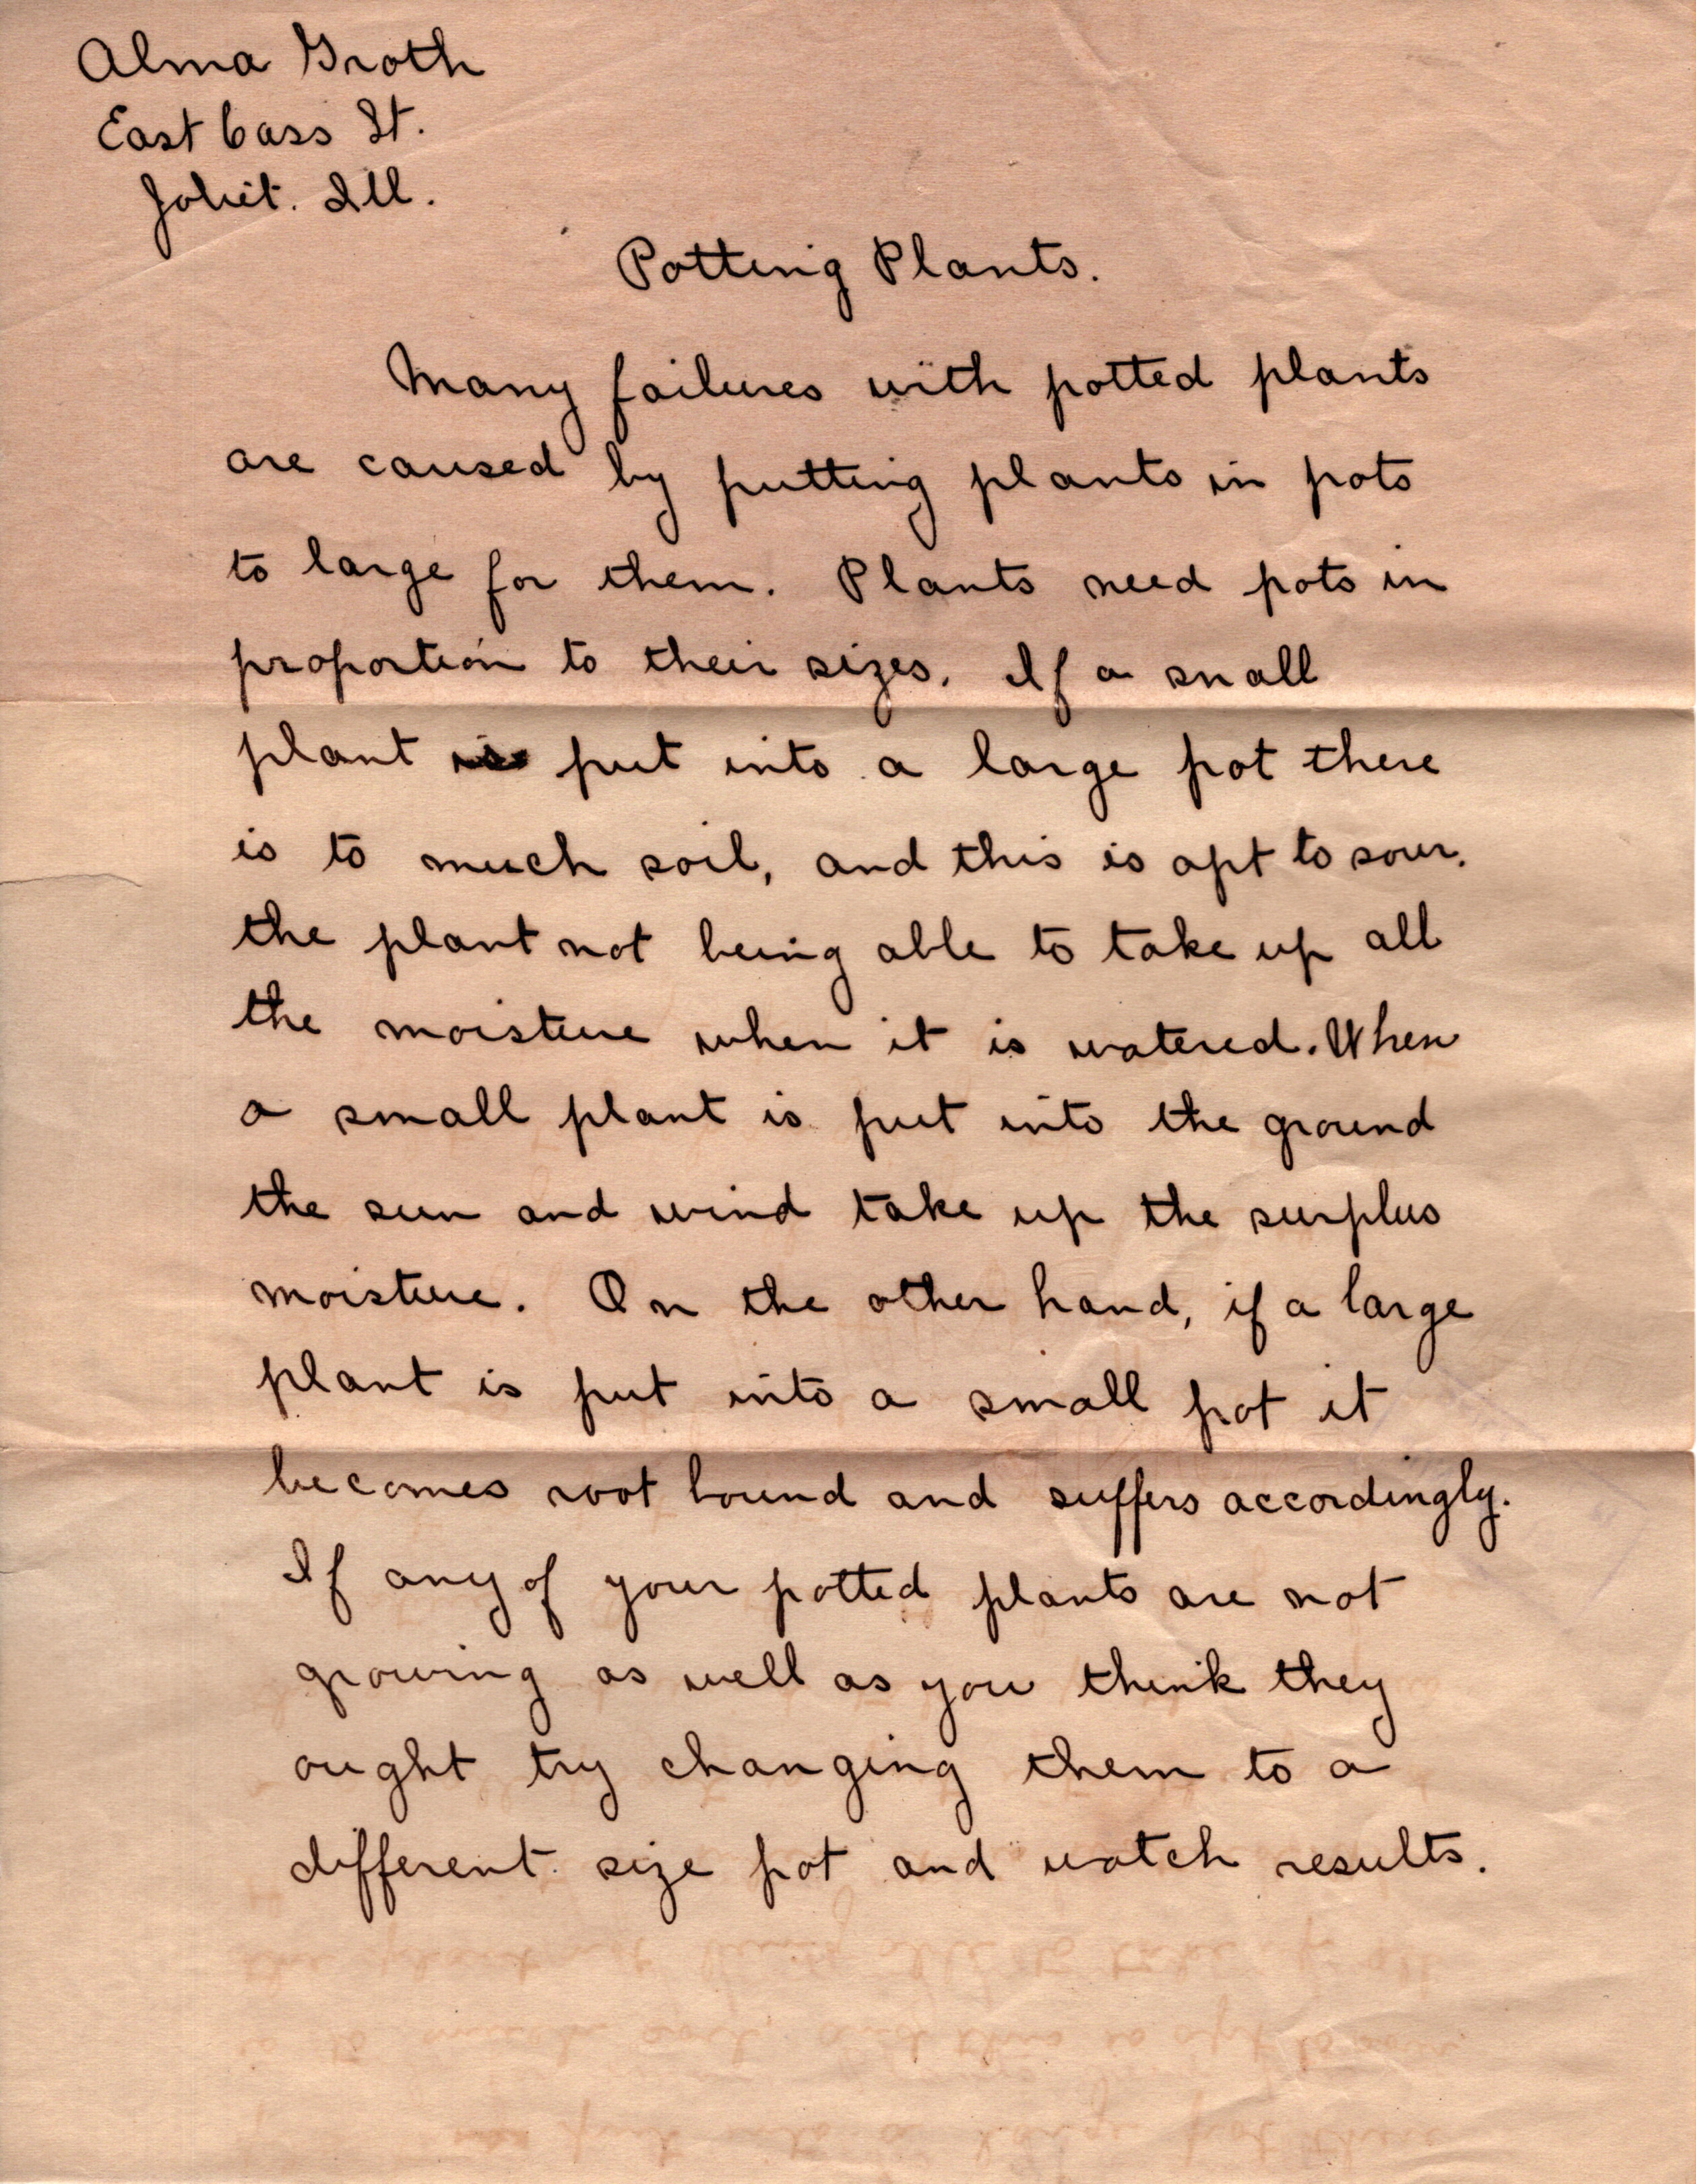 Alma Groth
East Cass St.
Joliet. Ill.
Potting Plants.
Many failures with potted plants
are caused by putting plants in pots
to large for them. Plants need pots in
proportion to their sizes. If a small
plant is put into a large pot there
is to much soil, and this is apt to sour.
the plant not being able to take up all
the moisture when it is watered. When
a small plant is put into the ground
the sun and wind take up the surplus
moisture. On the other hand, if a large
plant is put into a small pot it
becomes root bound and suffers accordingly.
If any of your potted plants are not
growing as well as you think they
ought try changing them to a
different size pot and watch results.